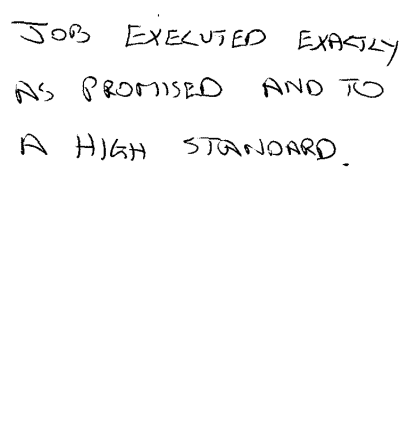 JOB EXECUTED EXACTLY
AS PROMISED AND TO
A HIGH STANDARD.